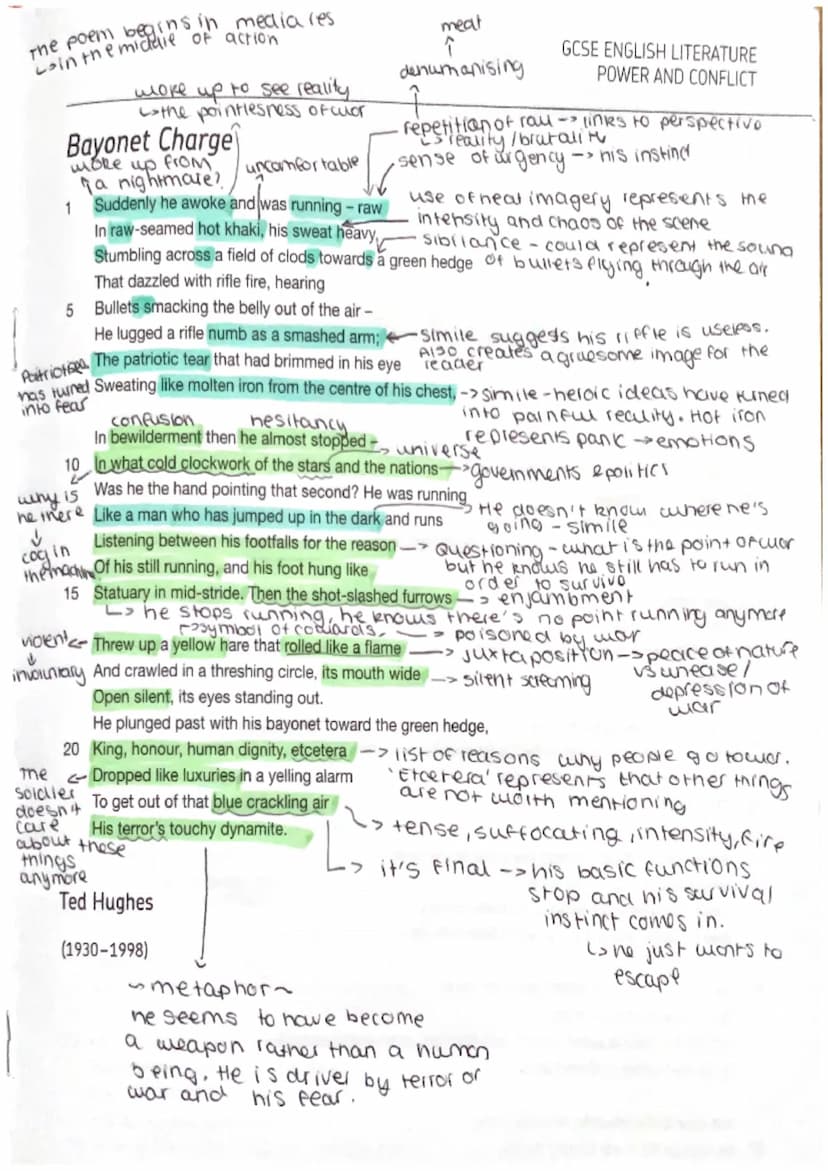 The poem begins in media res
↳in the middle of action
meat
↑
dehumanising
↑
GCSE ENGLISH LITERATURE
POWER AND CONFLICT
woke up to see reality
↳the pointlessness of war
repetition of raw -> links to perspective
↳reality/brutality
sense of urgency -> his instinct
Bayonet Charge
woke up from
a nightmare?
uncomfortable
use of heat imagery represents the
intensity and chaos of the scene
sibilance - could represent the sound
of bullets flying through the air
1 Suddenly he awoke and was running – raw
In raw-seamed hot khaki, his sweat heavy,
Stumbling across a field of clods towards a green hedge
That dazzled with rifle fire, hearing
5 Bullets smacking the belly out of the air –
He lugged a rifle numb as a smashed arm;
simile suggests his riffle is useless.
Also creates a gruesome image for the
reader
The patriotic tear that had brimmed in his eye
has turned
into fear
Sweating like molten iron from the centre of his chest,
-> simile - heroic ideas have turned
into painful reality. Hot iron
represents panic -> emotions
confusion
hesitancy
In bewilderment then he almost stopped –
universe
10 In what cold clockwork of the stars and the nations
-> governments & politics
why is
he here
↓
cog in
the machine
Was he the hand pointing that second? He was running
Like a man who has jumped up in the dark and runs
He doesn't know where he's
going - simile
Listening between his footfalls for the reason
-> Questioning - what is the point of war
but he knows he still has to run in
order to survive
Of his still running, and his foot hung like
15 Statuary in mid-stride. Then the shot-slashed furrows
-> enjambment
↳ he stops running, he knows there's no point running anymore
->symbol of cowards,
-> poisoned by war
violent
↓
involuntary
Threw up a yellow hare that rolled like a flame
-> juxtaposition -> peace of nature
vs unease/
depression of
war
And crawled in a threshing circle, its mouth wide
-> silent screaming
Open silent, its eyes standing out.
He plunged past with his bayonet toward the green hedge,
20 King, honour, human dignity, etcetera
-> list of reasons why people go to war.
'Etcetera' represents that other things
are not worth mentioning
the
soldier
doesn't
care
about these
things
anymore
Dropped like luxuries in a yelling alarm
To get out of that blue crackling air
-> tense, suffocating, intensity, fire
His terror's touchy dynamite.
-> it's final -> his basic functions
stop and his survival
instinct comes in.
↳he just wants to
escape
Ted Hughes
(1930–1998)
~metaphor~
he seems to have become
a weapon rather than a human
being. He is driver by terror of
war and his fear.